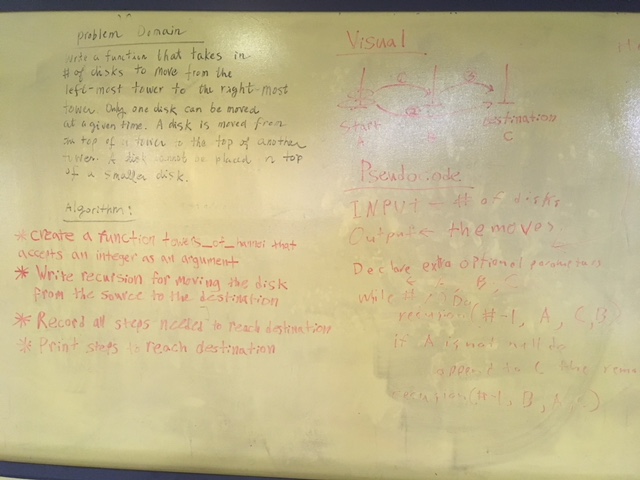 problem Domain
Write a function that takes in
# of disks to move from the
left-most tower to the right-most
tower. Only one disk can be moved
at a given time. A disk is moved from
top of a tower to the top of another
tower. A disk cannot be placed on top
of a smaller disk.
Algorithm:
* Create a function towers_of_hanoi that
accepts an integer as an argument
* Write recursion for moving the disk
from the source to the destination
* Record all steps needed to reach destination
* Print steps to reach destination
Visual
Start
destination
C
Pseudocode
INPUT ← # of disks
Output ← the moves
Declare extra optional parameters
while #
recursion(#-1, A, C, B)
if A is not null do
append to C the
recursion(#-1, B,